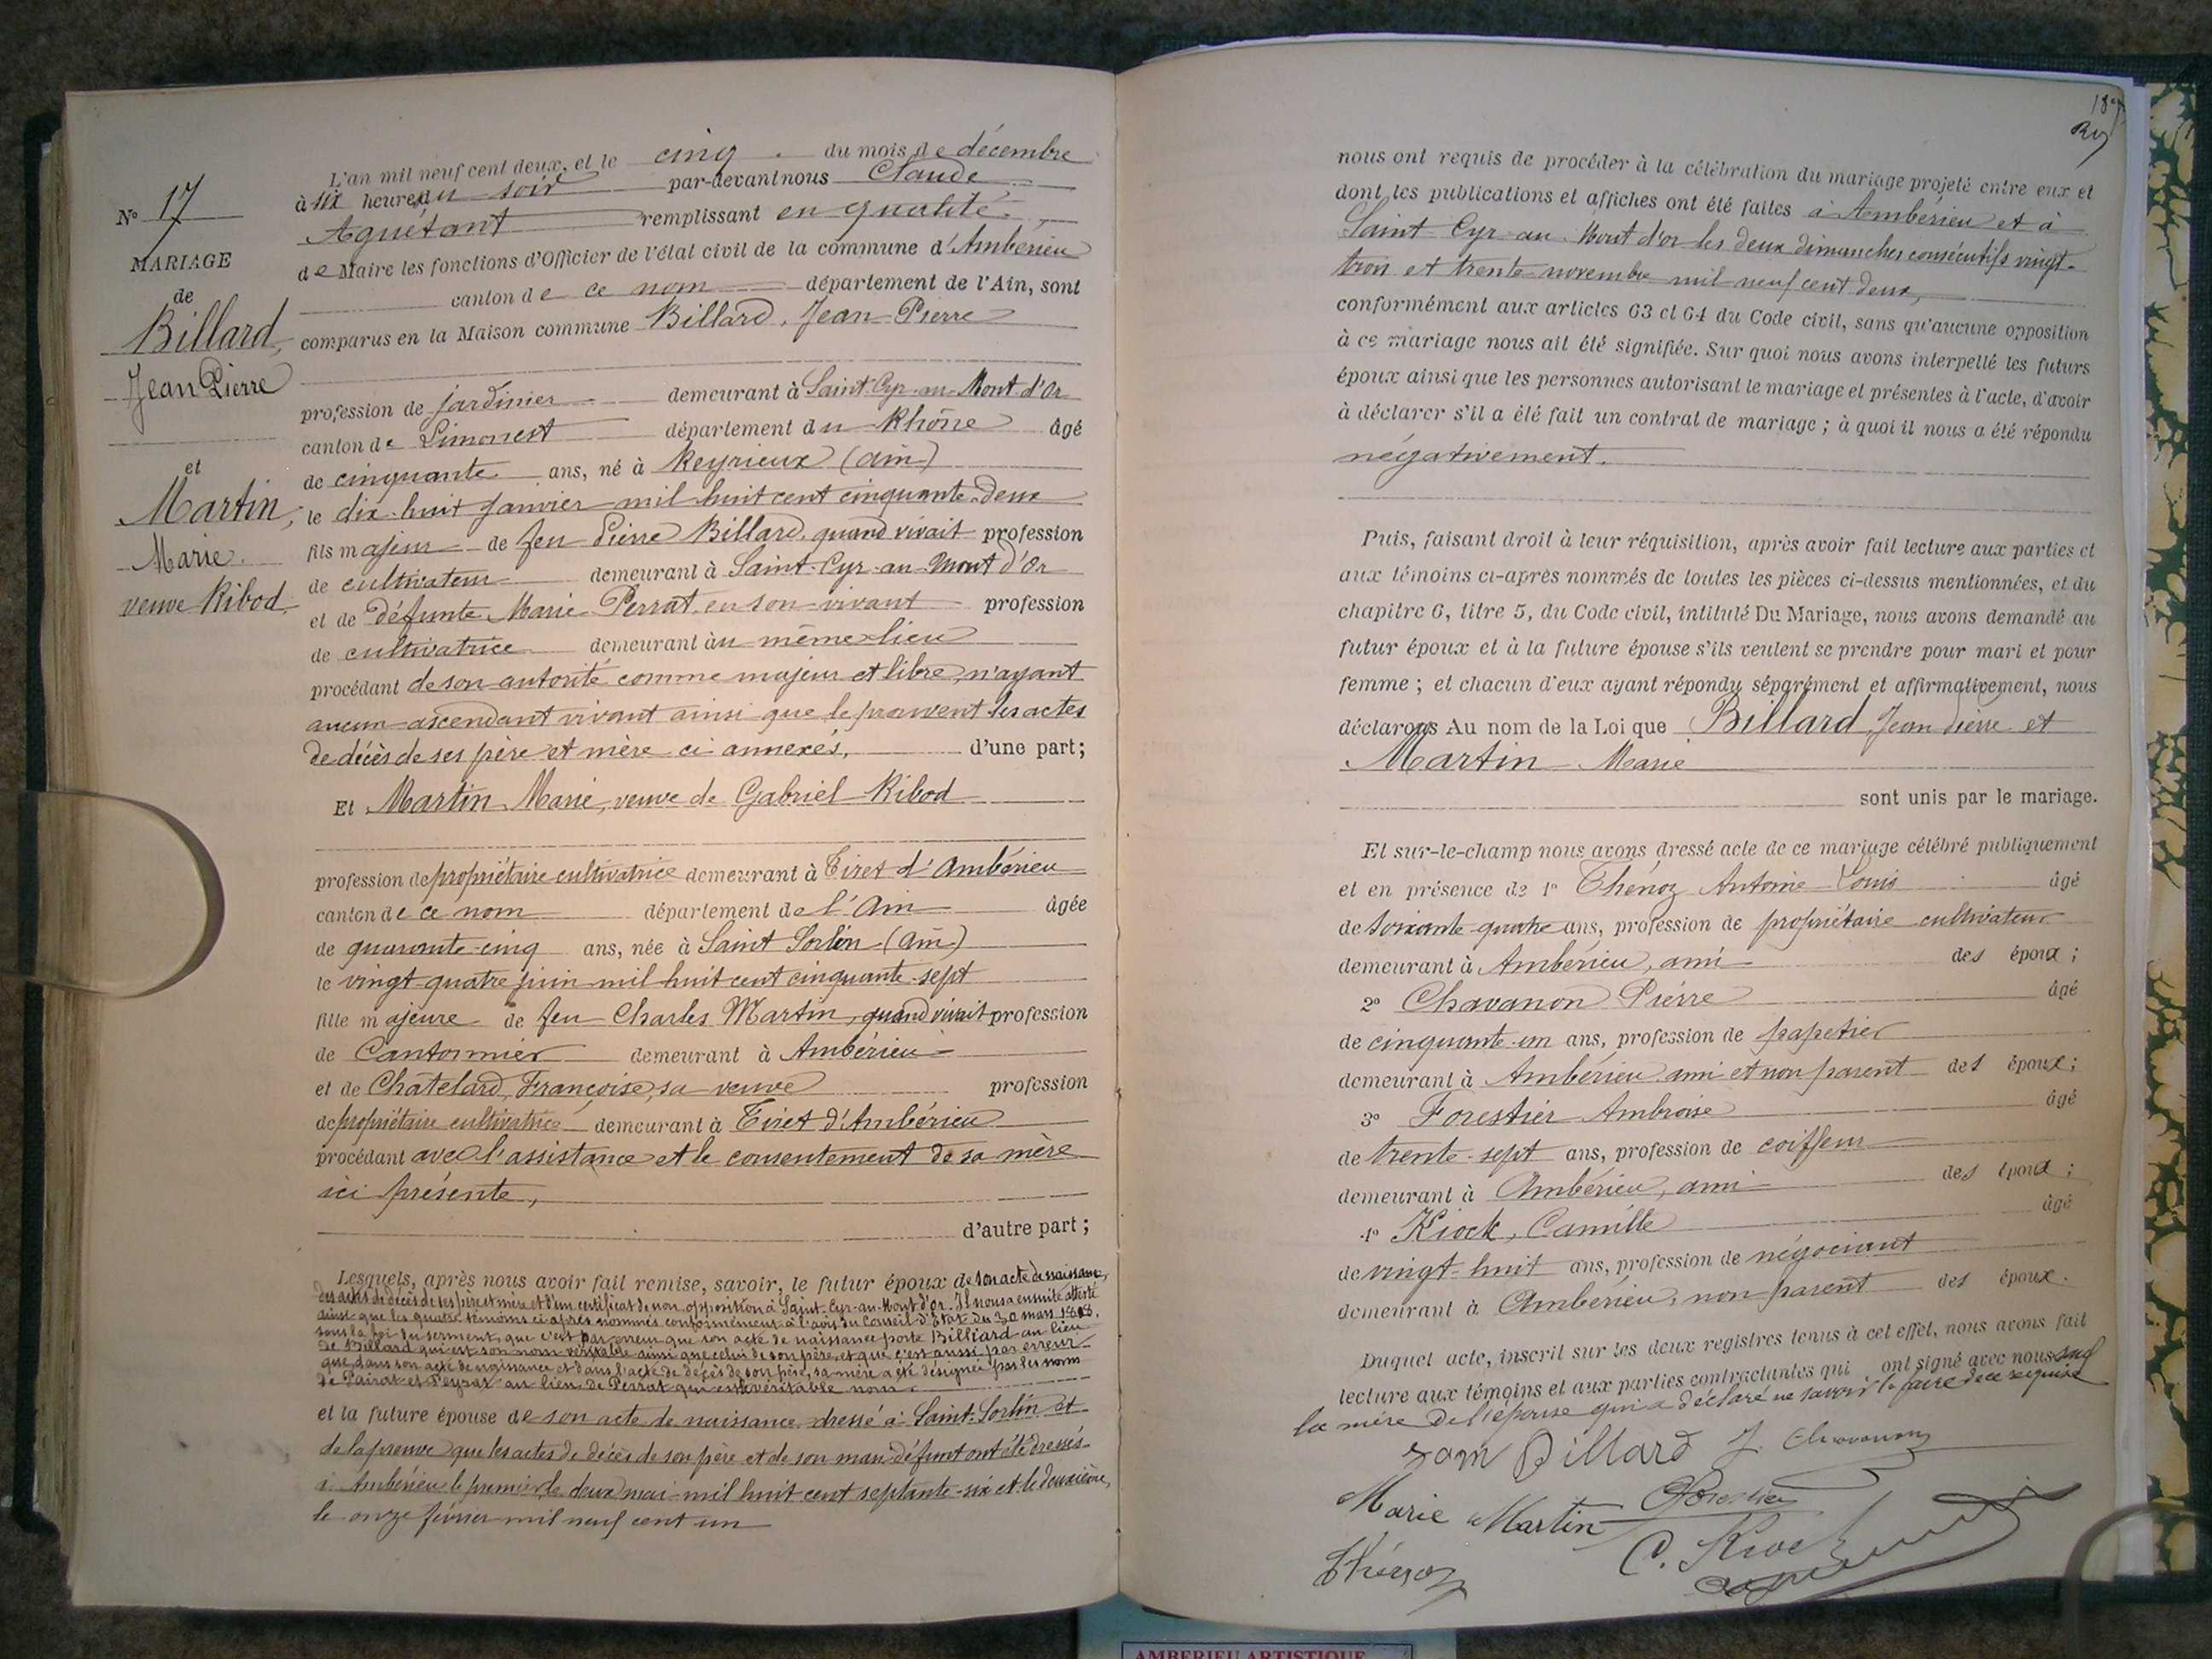 N° 17
MARIAGE
de
Billard,
Jean Pierre
et
Martin,
Marie.
veuve Ribod.
L'an mil neuf cent deux, et le cinq du mois de décembre
à six heures du soir par-devant nous Claude
Aguétant remplissant en qualité
de Maire les fonctions d'Officier de l'état civil de la commune d'Ambérieu
canton de ce nom département de l'Ain, sont
comparus en la Maison commune Billard, Jean Pierre
profession de jardinier demeurant à Saint-Cyr-au-Mont d'Or
canton de Limonest département du Rhône âgé
de cinquante ans, né à Reyrieux (Ain)
le dix-huit Janvier mil huit cent cinquante-deux
fils majeur de feu Pierre Billard, quand vivait profession
de cultivateur demeurant à Saint-Cyr-au-Mont d'Or
et de Défunte Marie Perrat, en son vivant profession
de cultivatrice demeurant au même lieu
procédant de son autorité comme majeur et libre, n'ayant
aucun ascendant vivant ainsi que le prouvent les actes
de décès de ses père et mère ci annexés, d'une part;
Et Martin Marie, veuve de Gabriel Ribod
profession de propriétaire cultivatrice demeurant à Tiret d'Ambérieu
canton de ce nom département de l'Ain âgée
de quarante-cinq ans, née à Saint Sorlin (Ain)
le vingt-quatre juin mil huit cent cinquante-sept
fille majeure de feu Charles Martin, quand vivait profession
de Cantonnier demeurant à Ambérieu
et de Châtelard, Françoise, sa veuve profession
de propriétaire cultivatrice demeurant à Tiret d'Ambérieu
procédant avec l'assistance et le consentement de sa mère
ici présente,
d'autre part;
Lesquels, après nous avoir fait remise, savoir, le futur époux de son acte de naissance,
des actes de décès de ses père et mère et d'un certificat de non opposition à Saint-Cyr-au-Mont d'or. Il nous a ensuite attesté
ainsi que les quatre témoins ci après nommés conformément à l'avis du Conseil d'Etat du 30 mars 1808,
sous la foi du serment, que c'est par erreur que son acte de naissance porte Billiard au lieu
de Billard qui est son nom véritable ainsi que celui de son père, et que c'est aussi par erreur
que, dans son acte de naissance et dans l'acte de décès de son père, sa mère a été désignée par les noms
de Pairat et Peyrat au lieu de Perrat qui est le véritable nom.
et la future épouse de son acte de naissance dressé à Saint-Sorlin et
de la preuve que les actes de décès de son père et de son mari défunt ont été dressés
à Ambérieu le premier le deux mai mil huit cent septante-six et le deuxième,
le onze février mil neuf cent un
nous ont requis de procéder à la célébration du mariage projeté entre eux et
dont les publications et affiches ont été faites à Ambérieu et à
Saint Cyr au Mont d'or les deux dimanches consécutifs vingt-
trois et trente novembre mil neuf cent deux,
conformément aux articles 63 et 64 du Code civil, sans qu'aucune opposition
à ce mariage nous ait été signifiée. Sur quoi nous avons interpellé les futurs
époux ainsi que les personnes autorisant le mariage et présentes à l'acte, d'avoir
à déclarer s'il a été fait un contrat de mariage; à quoi il nous a été répondu
négativement.
Puis, faisant droit à leur réquisition, après avoir fait lecture aux parties et
aux témoins ci-après nommés de toutes les pièces ci-dessus mentionnées, et du
chapitre 6, titre 5, du Code civil, intitulé Du Mariage, nous avons demandé au
futur époux et à la future épouse s'ils veulent se prendre pour mari et pour
femme; et chacun d'eux ayant répondu séparément et affirmativement, nous
déclarons Au nom de la Loi que Billard, Jean Pierre et
Martin Marie
sont unis par le mariage.
Et sur-le-champ nous avons dressé acte de ce mariage célébré publiquement
et en présence de 1° Thénoz Antoine Louis âgé
de soixante-quatre ans, profession de propriétaire cultivateur
demeurant à Ambérieu, ami des époux;
2° Chavanon Pierre âgé
de cinquante-un ans, profession de papetier
demeurant à Ambérieu ami et non parent des époux;
3° Forestier Ambroise âgé
de trente-sept ans, profession de coiffeur
demeurant à Ambérieu, ami des époux;
4° Kiock, Camille âgé
de vingt-huit ans, profession de négociant
demeurant à Ambérieu, non parent des époux.
Duquel acte, inscrit sur les deux registres tenus à cet effet, nous avons fait
lecture aux témoins et aux parties contractantes qui ont signé avec nous sauf
la mère de l'épouse qui a déclaré ne savoir le faire de ce requise
Billard J. Chavanon
Marie Martin Forestier
Thénoz C. Kiock
AMBERIEU ARTISTIQUE